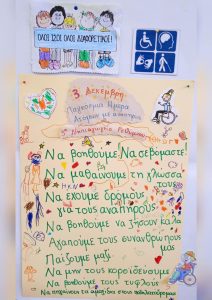 ΟΛΟΙ ΙΣΟΙ ΟΛΟΙ ΔΙΑΦΟΡΕΤΙΚΟΙ!
3 Δεκεμβρη:
Παγκόσμια Ημερα
Ατόμων με αναπηρία
5ο Νηπιαγωγείο Ρεθύμνου
Να βοηθουμε! Να σεβομαστε!
Να μαθαίνουμε τη γλωσσα
τους
Να εχουμε δρομους
για τους αναπηρους
Να βοηθουμε να ζησουν καλα
Αγαπουμε τους συνανθρωπους
μας
Παίζουμε μαζι
Να μην τους κοροϊδευουμε
Να βοηθουμε τους τυφλους
Να πηγαίνουν τα αμαξιδια στους πεζοδρομους